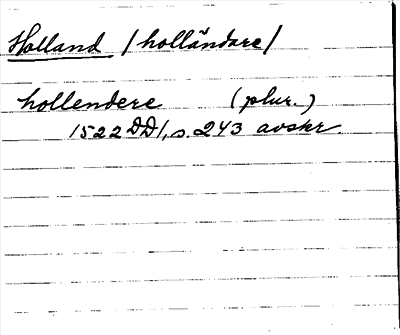 Holland /holländare/
hollendere (plur.)
1522 DD1, s. 243 avskr.